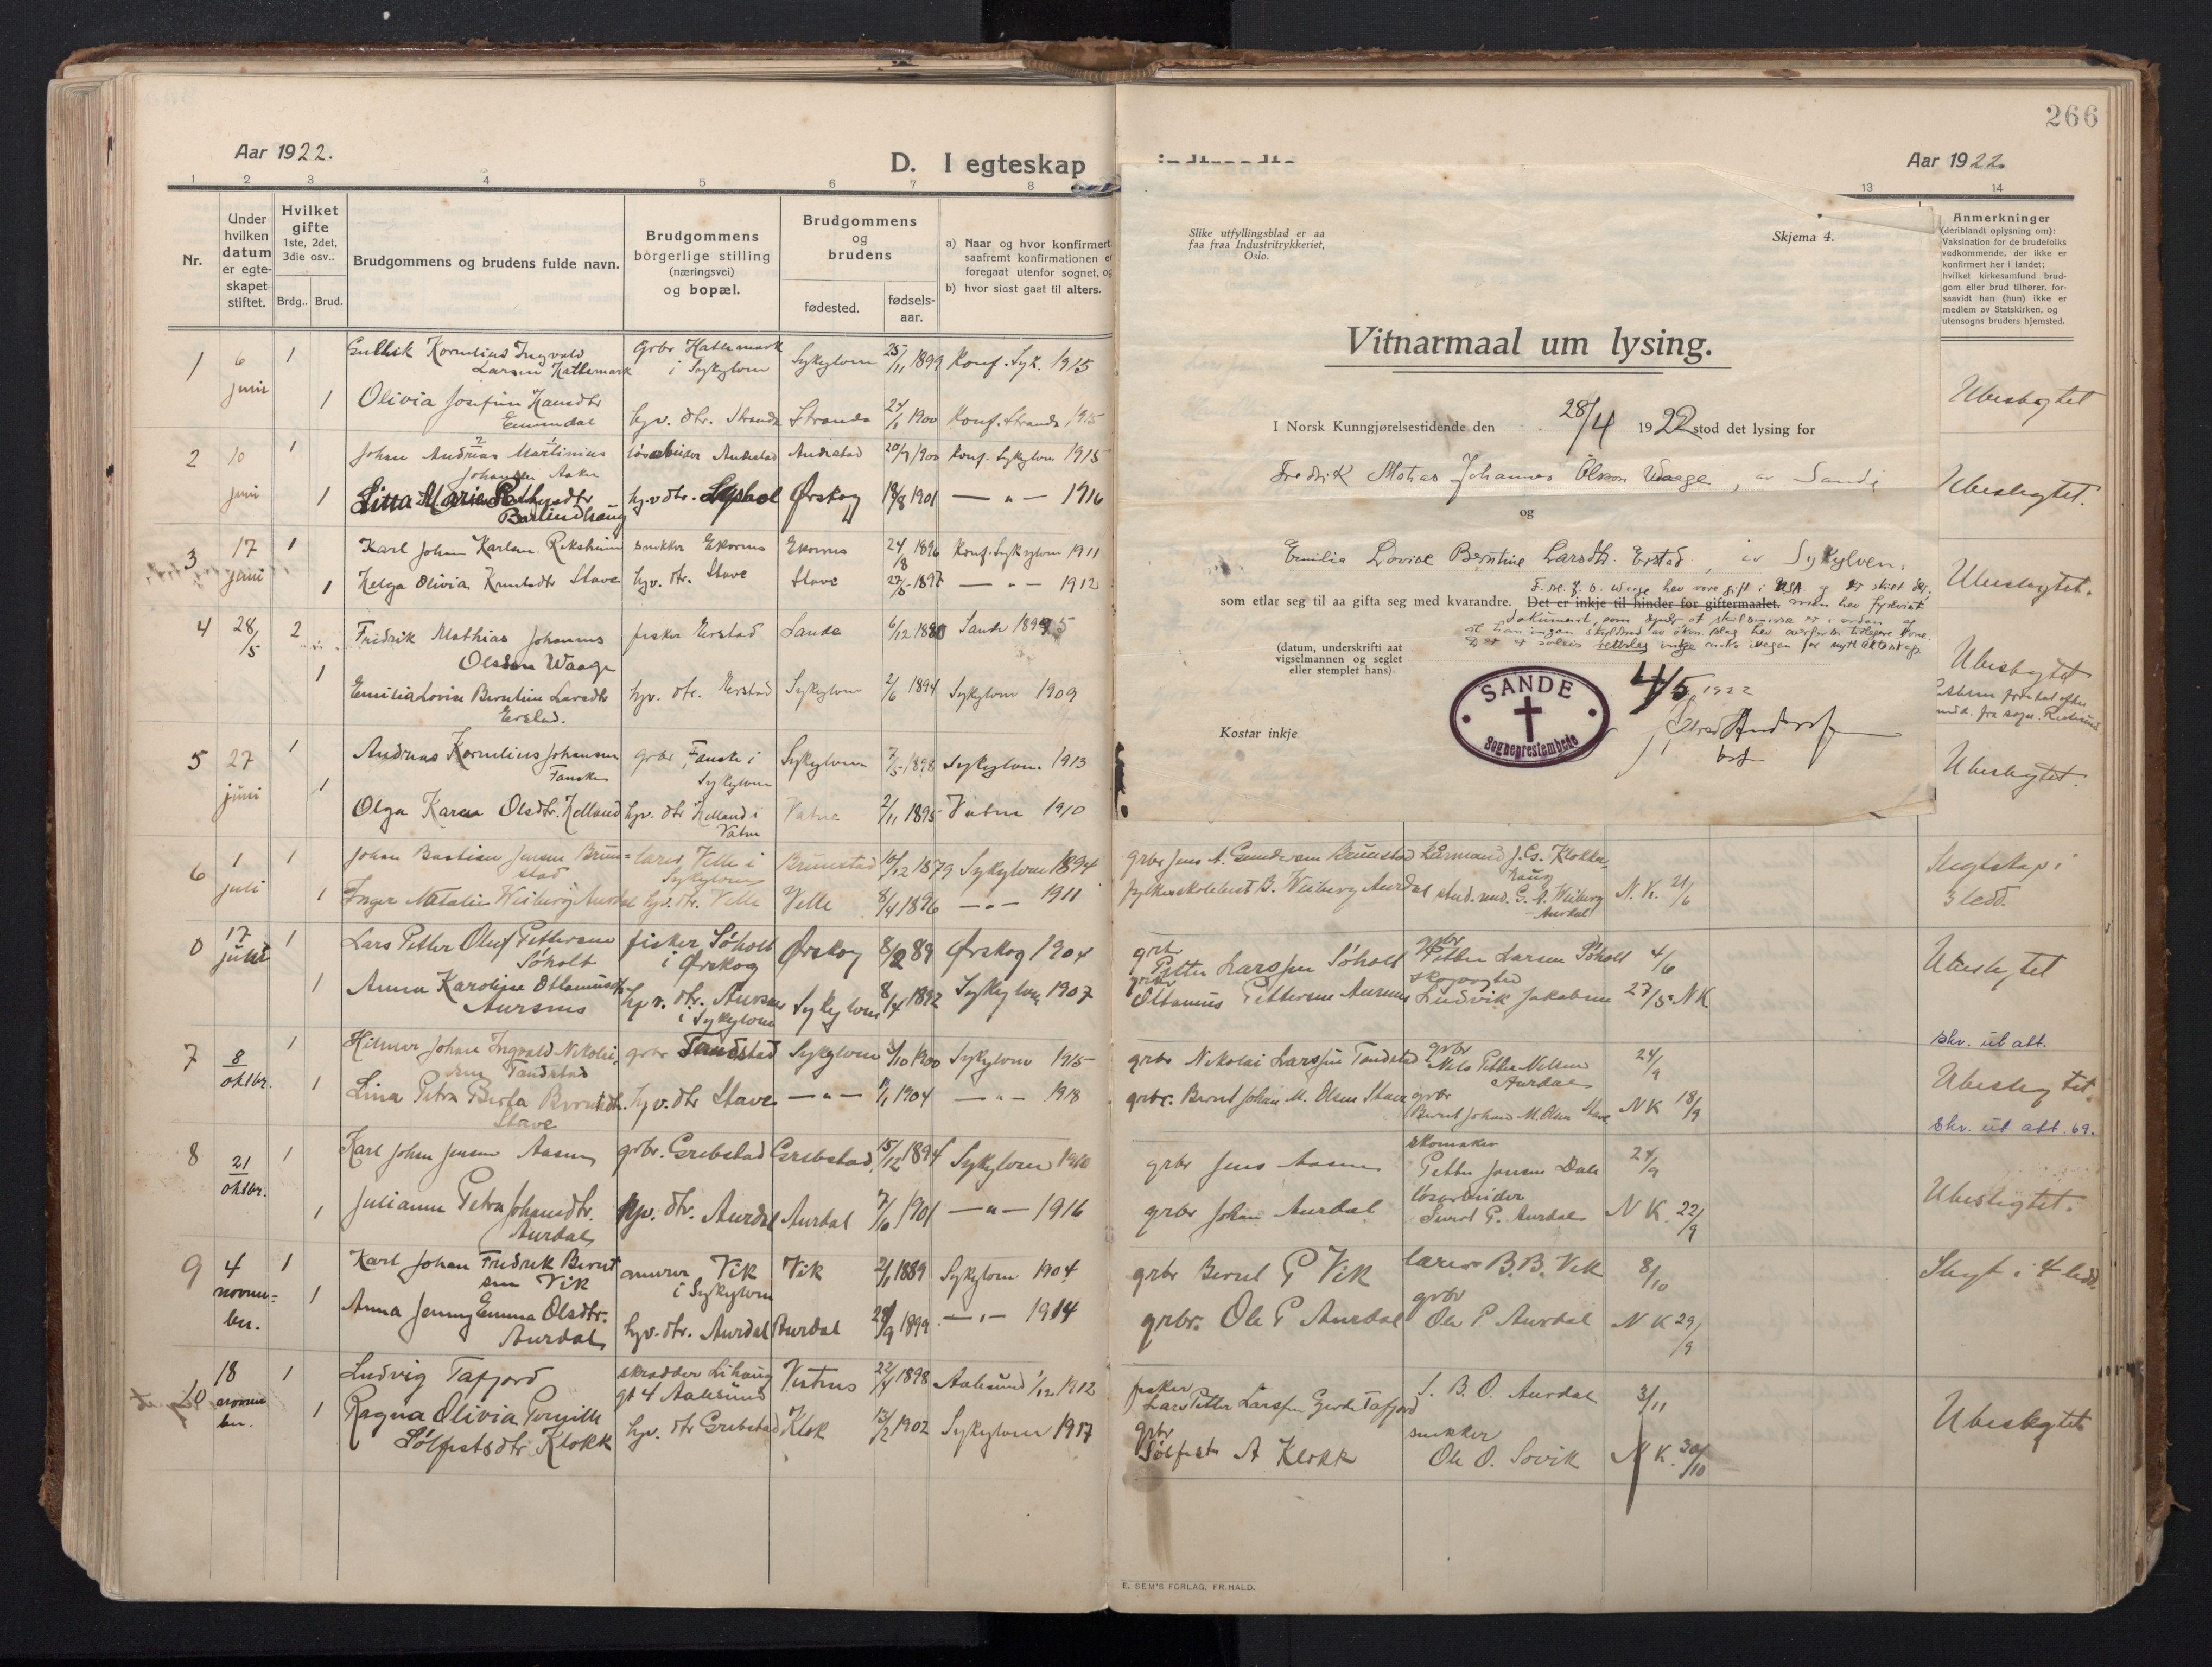 266
Aar 1922.
D. I egteskap
Aar 1922.
1 2 3 4 5 6 7 8
13 14
Nr.
Under hvilken datum er egte-skapet stiftet.
Hvilket gifte
1ste, 2det, 3die osv..
Brdg.. Brud.
Brudgommens og brudens fulde navn.
Brudgommens borgerlige stilling (næringsvei) og bopæl.
Brudgommens og brudens
fødested.
fødsels-aar.
a) Naar og hvor konfirmert
saafremt konfirmationen er
foregaat utenfor sognet, og
b) hvor sist gaat til alters.
Anmerkninger
(deriblandt oplysning om):
Vaksination for de brudefolks
vedkommende, der ikke er
konfirmert her i landet;
hvilket kirkesamfund brud-
gom eller brud tilhører, for-
saavidt han (hun) ikke er
medlem av Statskirken, og
utensogns bruders hjemsted.
1 6 juni 1 Kornelius Ingvald Larsen Hattemark grbr Hattemark i Sykylven Sykylven 25/11 1899 Konf. Syk. 1915
1 Olivia Josefine Hansdtr Emmdal hjv. dtr. Stranda Stranda 1900 Konf. Stranda 1915
Ubeslegtet
2 10 juni 1 Johan Andreas Martinius Johansen Aaker løsarbeider Andestad Andestad 1900 Konf. Sykylven 1915
1 Marie Barlindhaug hjv. dtr. Ørskog 18/8 1901 — " — 1916
Ubeslegtet.
3 17 juni 1 Karl Johan Karlsen Rekshuim snekker Ekornes Ekornes 24/8 1896 Konf. Sykylven 1911
1 Helga Olivia Knutsdtr Stave hjv. dtr. Stave Stave 27/5 1897 — " — 1912
Ubeslegtet.
4 28/5 2 Fredrik Mathias Johannes Olsen Waage fisker Erstad Sande 6/12 1880 Sande 1895
1 Emilia Lovise Berntine Larsdtr Erstad. hjv. dtr. Erstad Sykylven 2/6 1894 Sykylven 1909
Ubeslegtet
5 27 juni 1 Andreas Kornelius Johansen Fauske grbr Fauske i Sykylven Sykylven 7/5 1898 Sykylven 1913
1 Olga Karen Olsdtr. Helland hjv. dtr Helland i Vatne Vatne 2/11 1895 Vatne 1910
Ubeslegtet.
6 1 juli 1 Johan Bastian Jensen Brunstad lærer, Velle i Sykylven Brunstad 10/12 1879 Sykylven 1894
grbr Jens A. Gundersen Brunstad
Lensmand J. Cs. Klokkehaug
1 Inger Natalie Weiberg Aurdal hjv. dtr. Velle Velle 8/4 1896 — " — 1911
fylkesskolebest B. Weiberg Aurdal stud. med. G. A. Weiberg Aurdal N. K. 21/6
Slegtskap i 3 ledd.
0 17 juni 1 Lars Petter Oluf Pettersen Søholt fisker Søholt i Ørskog Ørskog 8/2 89 Ørskog 1904
grbr Petter Larssen Søholt
grbr Petter Larsen Søholt 4/6
1 Anna Karoline Ottomusdtr Aursnes hjv. dtr. Aursnes i Sykylven Sykylven 8/4 1892 Sykylven 1907
grbr Ottomus Pettersen Aursnes
skogvogter Ludvik Jakobsen 27/5 NK
Ubeslegtet
7 8/oktbr. 1 Hilmar Johan Ingvald Nikolaisen Tandstad grbr Tandstad Sykylven 3/10 1900 Sykylven 1915
grbr Nikolai Larssen Tandstad
grbr Nils Petter Nilsen Aurdal 24/9
1 Lina Petra Berta Berntsdtr. Stave hjv. dtr Stave — " — 1/1 1904 — " — 1918
grbr. Bernt Johan M. Olsen Stave
grbr Bernt Johan M. Olsen Stave NK 18/9
skr. ut att.
Ubeslegtet.
skr. ut att. 69.
8 21/oktbr. 1 Karl Johan Jensen Aasen grbr. Grebstad Grebstad 15/12 1894 Sykylven 1910
grbr Jens Aasen
skomaker Petter Jensen Dale 24/9
1 Julianne Petra Johansdtr. Aurdal hjv. dtr. Aurdal Aurdal 7/10 1901 — " — 1916
grbr Johan Aurdal
løsarbeider Sivert P. Aurdal N K. 22/9
Ubeslegtet.
9 4 november. 1 Karl Johan Fredrik Berntsen Vik murer Vik i Sykylven Vik 2/1 1889 Sykylven 1904
grbr Bernt P Vik lærer B.B. Vik 8/10
1 Anna Jenny Emma Olsdtr. Aurdal hjv. dtr. Aurdal Aurdal 29/9 1899 — " — 1914
grbr. Ole P Aurdal
grbr Ole P Aurdal N K 29/9
Slegt i 4 ledd.
10 18 november. 1 Ludvig Tafjord skrædder Lihaug gt 4 Aalesund Vestnes 22/4 1898 Aalesund 1/12 1912
fisker Lars Petter Larssen Gjerde Tafjord
S. B. O. Aurdal 3/11
1 Ragna Olivia Pernille Sølfestsdtr. Klokk hjv. dtr Grebstad Klok 13/2 1902 Sykylven 1917
grbr Sølfest A Klokk
snekker Ole O. Sovik N K. 30/10
Ubeslegtet
Slike utfyllingsblad er aa
faa fraa Industritrykkeriet,
Oslo.
Skjema 4.
Vitnarmaal um lysing.
I Norsk Kunngjørelsestidende den 28/4 1922 stod det lysing for
Fredrik Matias Johannes Olsson Waage, av Sande
og
Emilia Lovise Berntine Larsdtr. Erstad, iv Sykylven.
F. M. J. O. Waage hev vore gift i USA og er skilt der,
som etlar seg til aa gifta seg med kvarandre. Det er inkje til hinder for giftermaalet. men hev fyrevist
dokument, som syner at skilsmissa er i orden og
at han ingen skyldnad av økon. slag hev overfor tidlegare kone.
Det er soleis inkje i vegen for nytt ekteskap
(datum, underskrifti aat
vigselmannen og seglet
eller stemplet hans)
4/5 1922
SANDE
Sogneprestembede
Kostar inkje
E. SEM'S FORLAG, FR.HALD.